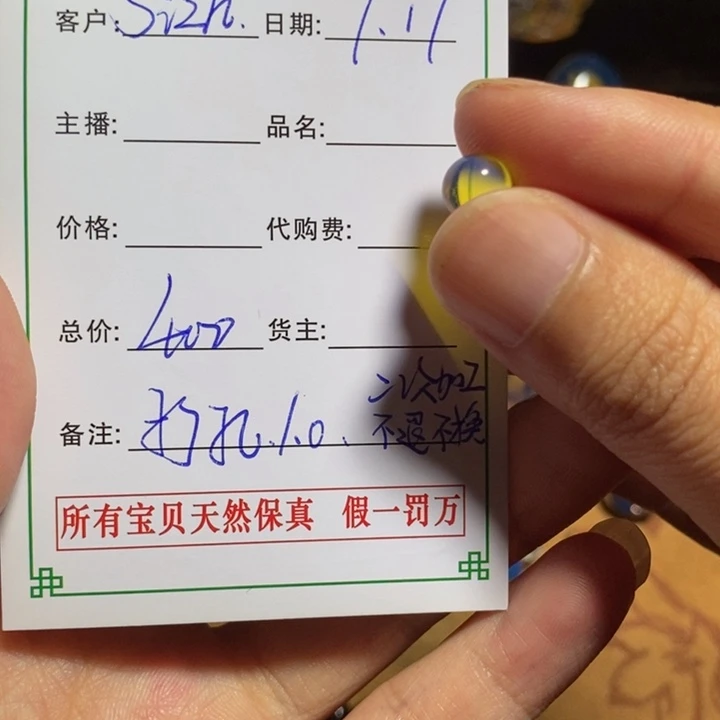 客户: 日期: 1.11
主播: 品名:
价格: 代购费:
总价: 400 货主:
二次加工
备注: 打孔1.0、 不退不换
所有宝贝天然保真 假一罚万